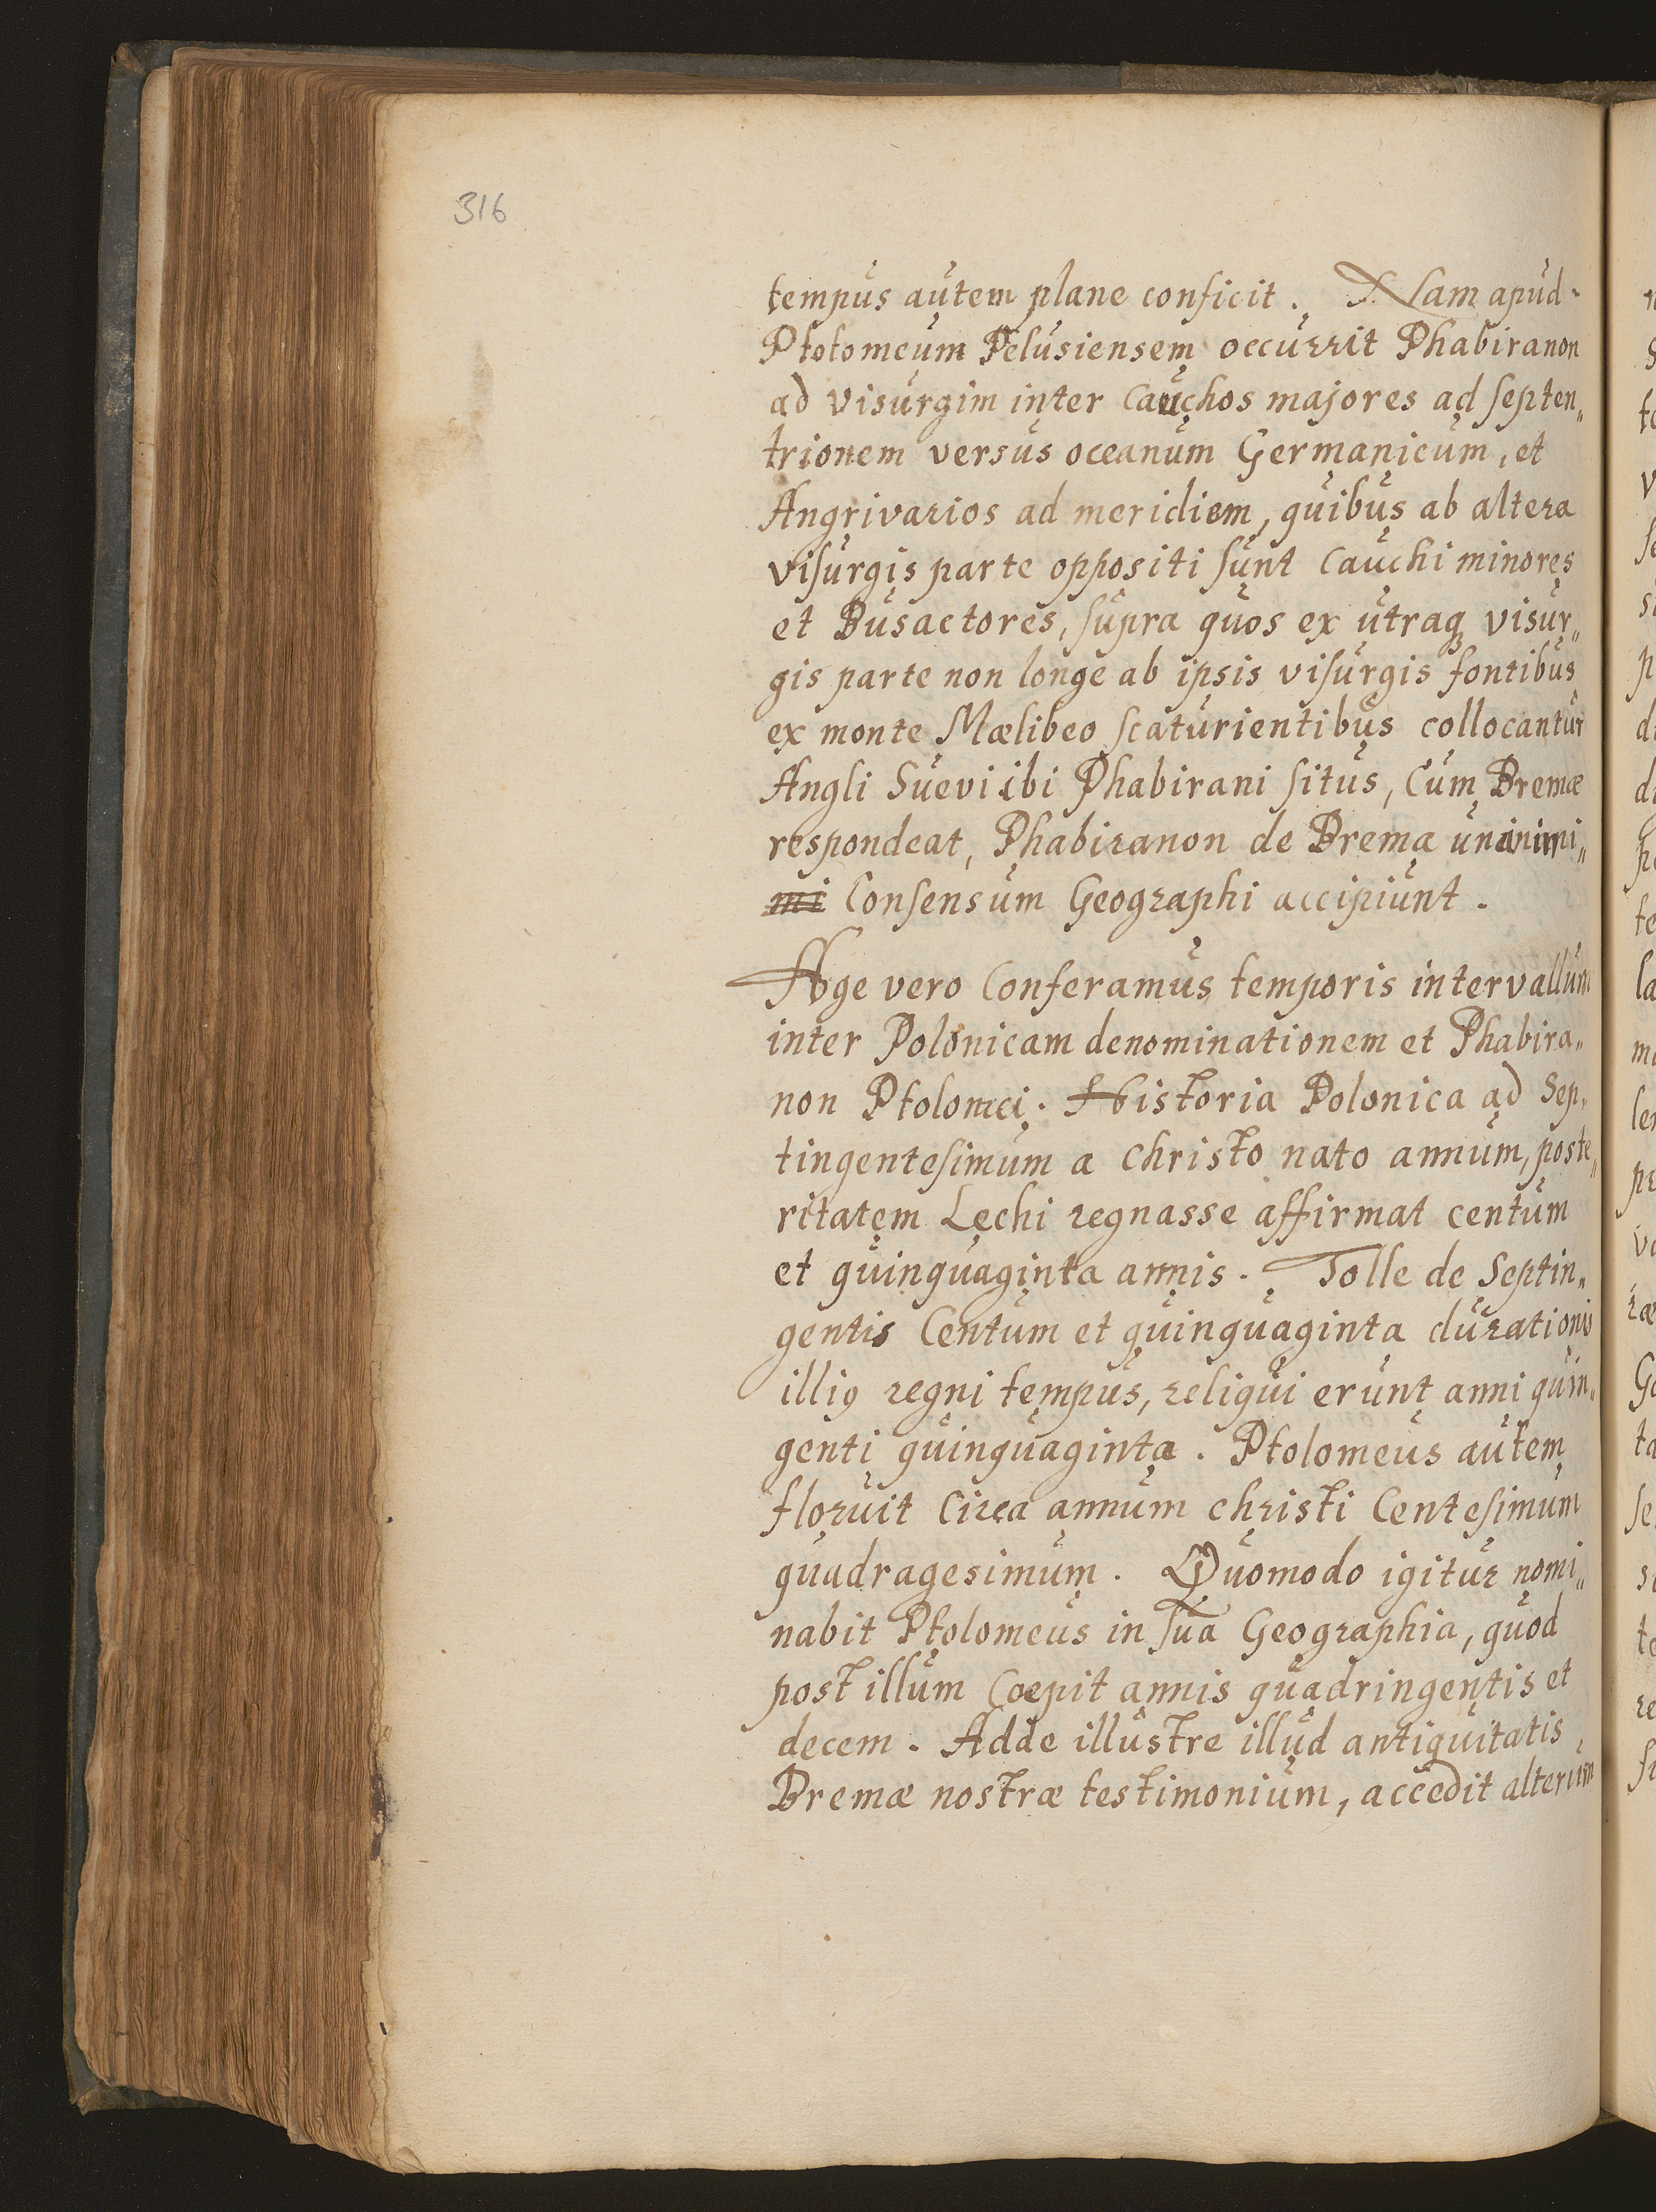 316
tempus autem plane conficit. Nam apud
Ptolomeum Pelusiensem occurrit Phabiranon
ad visurgim inter Cauchos majores ad septen„
trionem versus oceanum Germanicum, et
Angrivarios ad meridiem, quibus ab altera
visurgis parte oppositi sunt Cauchi minores
et Busactores, supra quos ex utraq visur„
gis parte non longe ab ipsis visurgis fontibus
ex monte Mælibeo scaturientibus collocantur
Angli Suevi ibi Phabirani situs, Cum Bremæ
respondeat, Phabiranon de Brema unanimi„
mi Consensum Geographi accipiunt.
Age vero Conferamus temporis intervallum
inter Polonicam denominationem et Phabira„
non Ptolomei. Historia Polonica ad Sep„
tingentesimum a Christo nato annum, poste„
ritatem Lechi regnasse affirmat centum
et quinquaginta annis. Tolle de Septin„
gentis Centum et quinquaginta durationis
illiꝰ regni tempus, reliqui erunt anni quin„
genti quinquaginta. Ptolomeus autem
floruit Circa annum christi Centesimum
quadragesimum. Quomodo igitur nomi„
nabit Ptolomeus in sua Geographia, quod
post illum Coepit annis quadringentis et
decem. Adde illustre illud antiquitatis,
Bremæ nostræ testimonium, accedit alterum